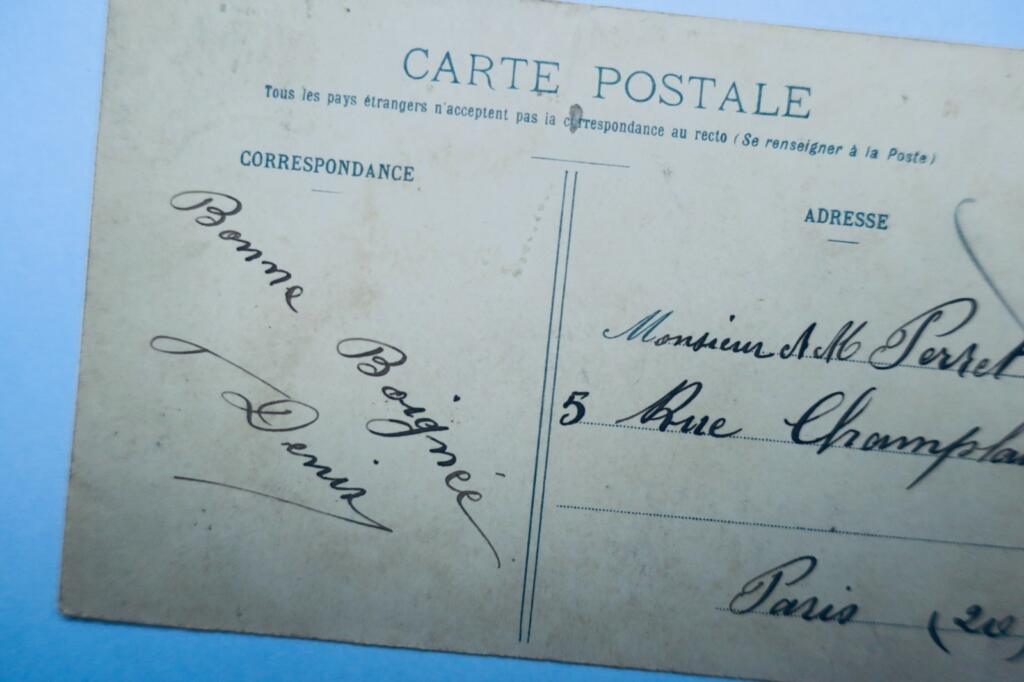 CARTE POSTALE
Tous les pays étrangers n'acceptent pas la correspondance au recto (Se renseigner à la Poste)
CORRESPONDANCE
ADRESSE
Bonne
Boignée
Denis
Monsieur A M Perret
5 Rue Champla
Paris (20)